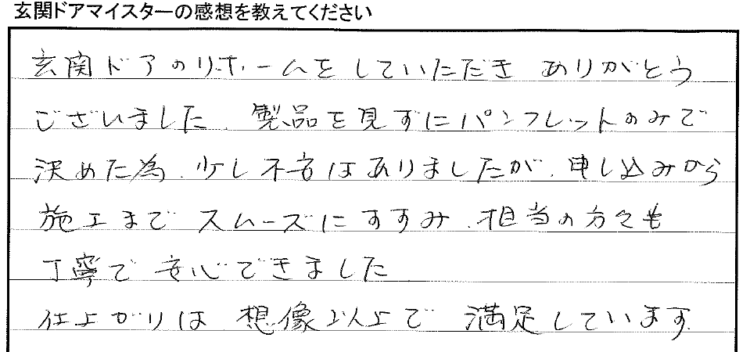 玄関ドアマイスターの感想を教えてください
玄関ドアのリホームをしていただき ありがとう
ございました、製品を見ずにパンフレットのみで
決めた為、少し不安はありましたが、申し込みから
施工まで スムーズにすすみ、担当の方々も
丁寧で 安心できました
仕上がりは 想像以上で 満足しています。